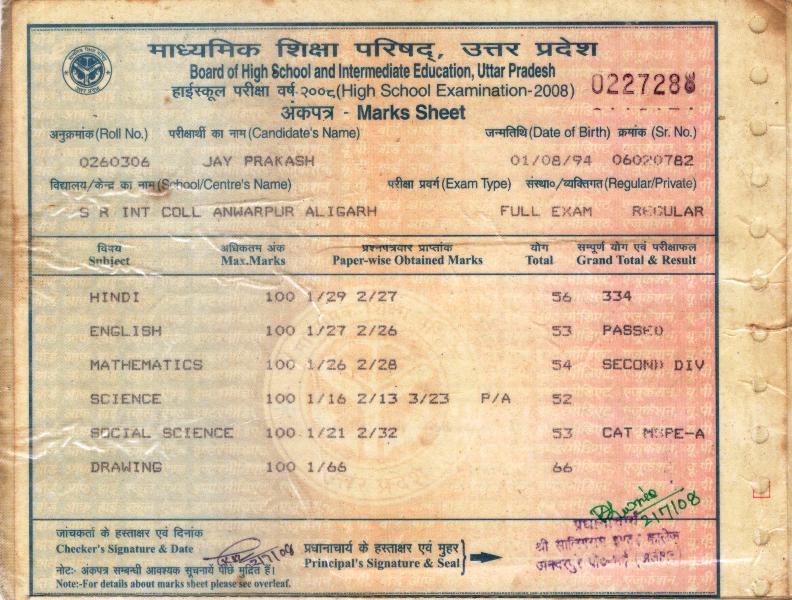 माध्यमिक शिक्षा परिषद्, उत्तर प्रदेश
Board of High School and Intermediate Education, Uttar Pradesh
हाईस्कूल परीक्षा वर्ष-२००८ (High School Examination-2008) 0227288
अंकपत्र - Marks Sheet
अनुक्रमांक (Roll No.) परीक्षार्थी का नाम (Candidate's Name) जन्मतिथि (Date of Birth) क्रमांक (Sr. No.)
0260306 JAY PRAKASH 01/08/94 06020782
विद्यालय/केन्द्र का नाम (School/Centre's Name) परीक्षा प्रवर्ग (Exam Type) संस्था०/व्यक्तिगत (Regular/Private)
S R INT COLL ANWARPUR ALIGARH FULL EXAM REGULAR
विषय अधिकतम अंक प्रश्नपत्रवार प्राप्तांक योग सम्पूर्ण योग एवं परीक्षाफल
Subject Max.Marks Paper-wise Obtained Marks Total Grand Total & Result
HINDI 100 1/29 2/27 56 334
ENGLISH 100 1/27 2/26 53 PASSED
MATHEMATICS 100 1/26 2/28 54 SECOND DIV
SCIENCE 100 1/16 2/13 3/23 P/A 52
SOCIAL SCIENCE 100 1/21 2/32 53 CAT M&PE-A
DRAWING 100 1/66 66
2/7/08
जांचकर्ता के हस्ताक्षर एवं दिनांक
Checker's Signature & Date 2/7/08
प्रधानाचार्य के हस्ताक्षर एवं मुहर
Principal's Signature & Seal
प्रधानाचार्य
नोटः अंकपत्र सम्बन्धी आवश्यक सूचनायें पीछे मुद्रित हैं।
Note:-For details about marks sheet please see overleaf.